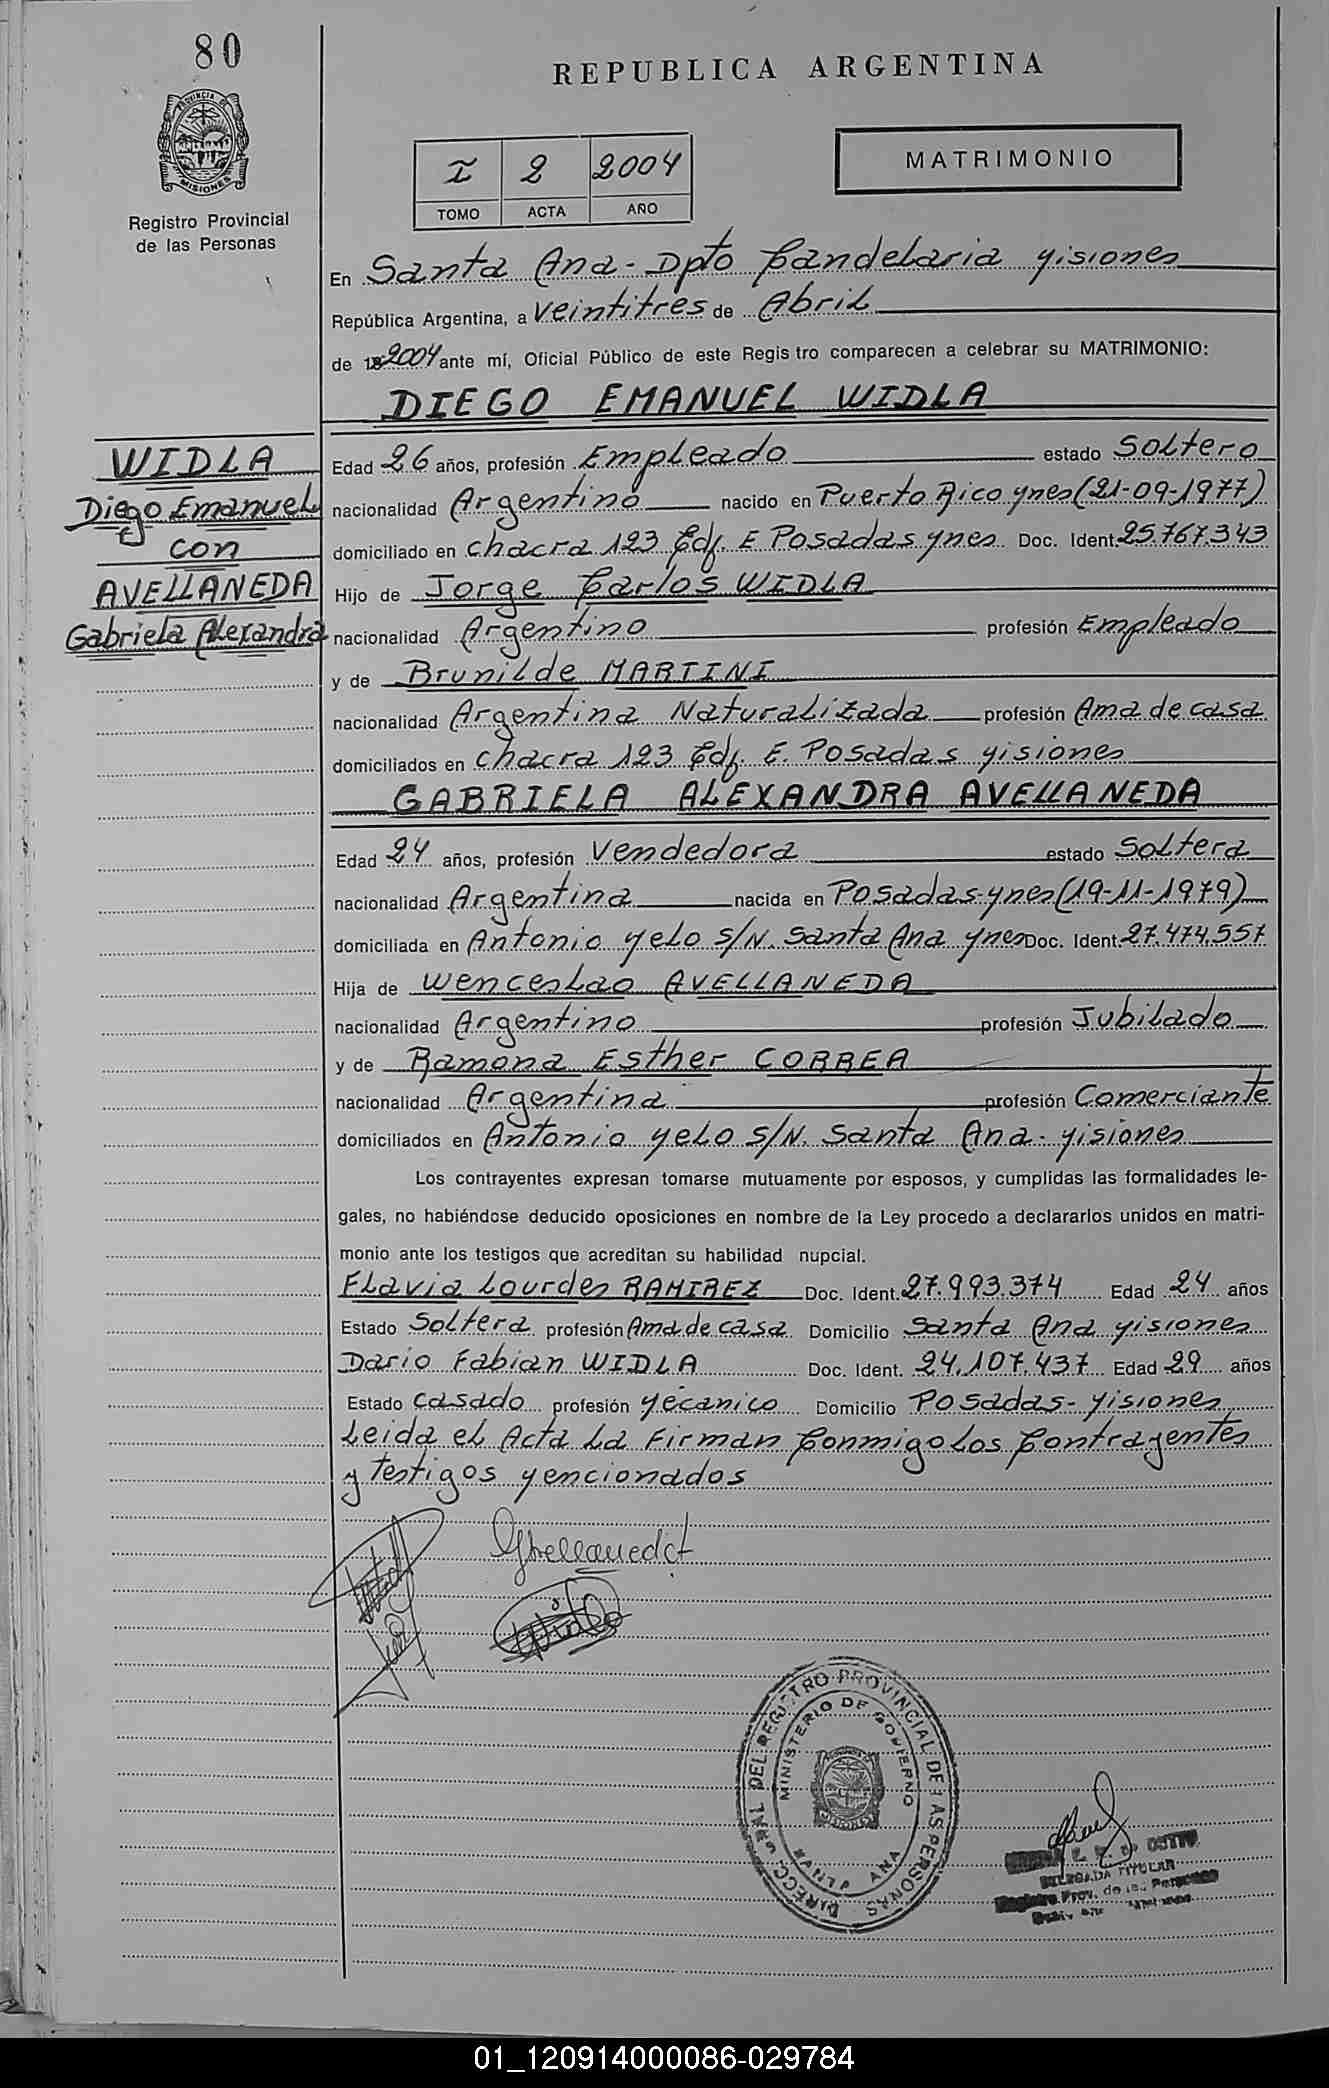 80
REPUBLICA ARGENTINA
PROVINCIA DE
MISIONES
Registro Provincial
de las Personas
I 2 2004
TOMO ACTA AÑO
MATRIMONIO
En Santa Ana - Dpto Candelaria Misiones
República Argentina, a Veintitres de Abril
de 2004 ante mí, Oficial Público de este Registro comparecen a celebrar su MATRIMONIO:
DIEGO EMANUEL WIDLA
WIDLA
Diego Emanuel
con
AVELLANEDA
Gabriela Alexandra
Edad 26 años, profesión Empleado estado Soltero
nacionalidad Argentino nacido en Puerto Rico Mnes (21-09-1977)
domiciliado en chacra 123 Edf. E Posadas Mnes Doc. Ident. 25.767.343
Hijo de Jorge Carlos WIDLA
nacionalidad Argentino profesión Empleado
y de Brunilde MARTINI
nacionalidad Argentina Naturalizada profesión Ama de casa
domiciliados en chacra 123 Edf. E. Posadas Misiones
GABRIELA ALEXANDRA AVELLANEDA
Edad 24 años, profesión Vendedora estado Soltera
nacionalidad Argentina nacida en Posadas-Mnes (19-11-1979)
domiciliada en Antonio Melo S/N. Santa Ana Mnes Doc. Ident. 27.474.557
Hija de Wenceslao AVELLANEDA
nacionalidad Argentino profesión Jubilado
y de Ramona Esther CORREA
nacionalidad Argentina profesión Comerciante
domiciliados en Antonio Melo S/N. Santa Ana - Misiones
Los contrayentes expresan tomarse mutuamente por esposos, y cumplidas las formalidades le-
gales, no habiéndose deducido oposiciones en nombre de la Ley procedo a declararlos unidos en matri-
monio ante los testigos que acreditan su habilidad nupcial.
Flavia Lourdes RAMIREZ Doc. Ident. 27.993.374 Edad 24 años
Estado Soltera profesión Ama de casa Domicilio Santa Ana Misiones
Dario Fabian WIDLA Doc. Ident. 24.107.437 Edad 29 años
Estado Casado profesión Mecanico Domicilio Posadas - Misiones
Leida el Acta La Firman Conmigo Los Contrayentes
y Testigos Mencionados
GAvellaneda
DIRECC. GRAL. DEL REGISTRO PROVINCIAL DE LAS PERSONAS
MINISTERIO DE GOBIERNO
SANTA ANA
DELEGADA TITULAR
Registro Prov. de las Personas
01_120914000086-029784